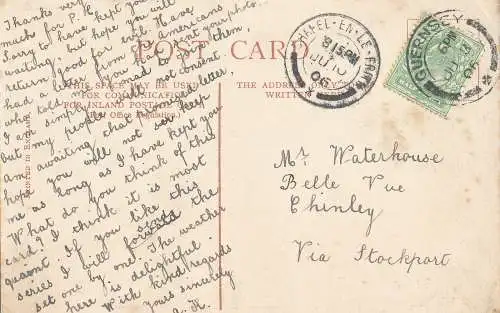 Thanks very
much for P.C.
Sorry to have kept you
waiting, but hope you will
return good for evil. Have
had a letter from Americans
who told me you want your photo.
I am simply mad to get them,
but my people will not consent.
am awaiting that or a letter,
hope you will not keep
me as long as I have kept you
What do you think of this
card? I think it is most
quaint. If you like this
series I will forward the
set one by one. The weather
here is delightful
With kind regards
Yours sincerely
POST CARD
THIS SPACE MAY BE USED
FOR COMMUNICATION
FOR INLAND POSTAGE
(Post Office Regulation.)
THE ADDRESS
WRITTEN
CHAPEL-EN-LE-FRITH
8.15PM
JU 10
06
GUERNSEY
JU
06
Mr Waterhouse
Belle Vue
Chinley
Via Stockport